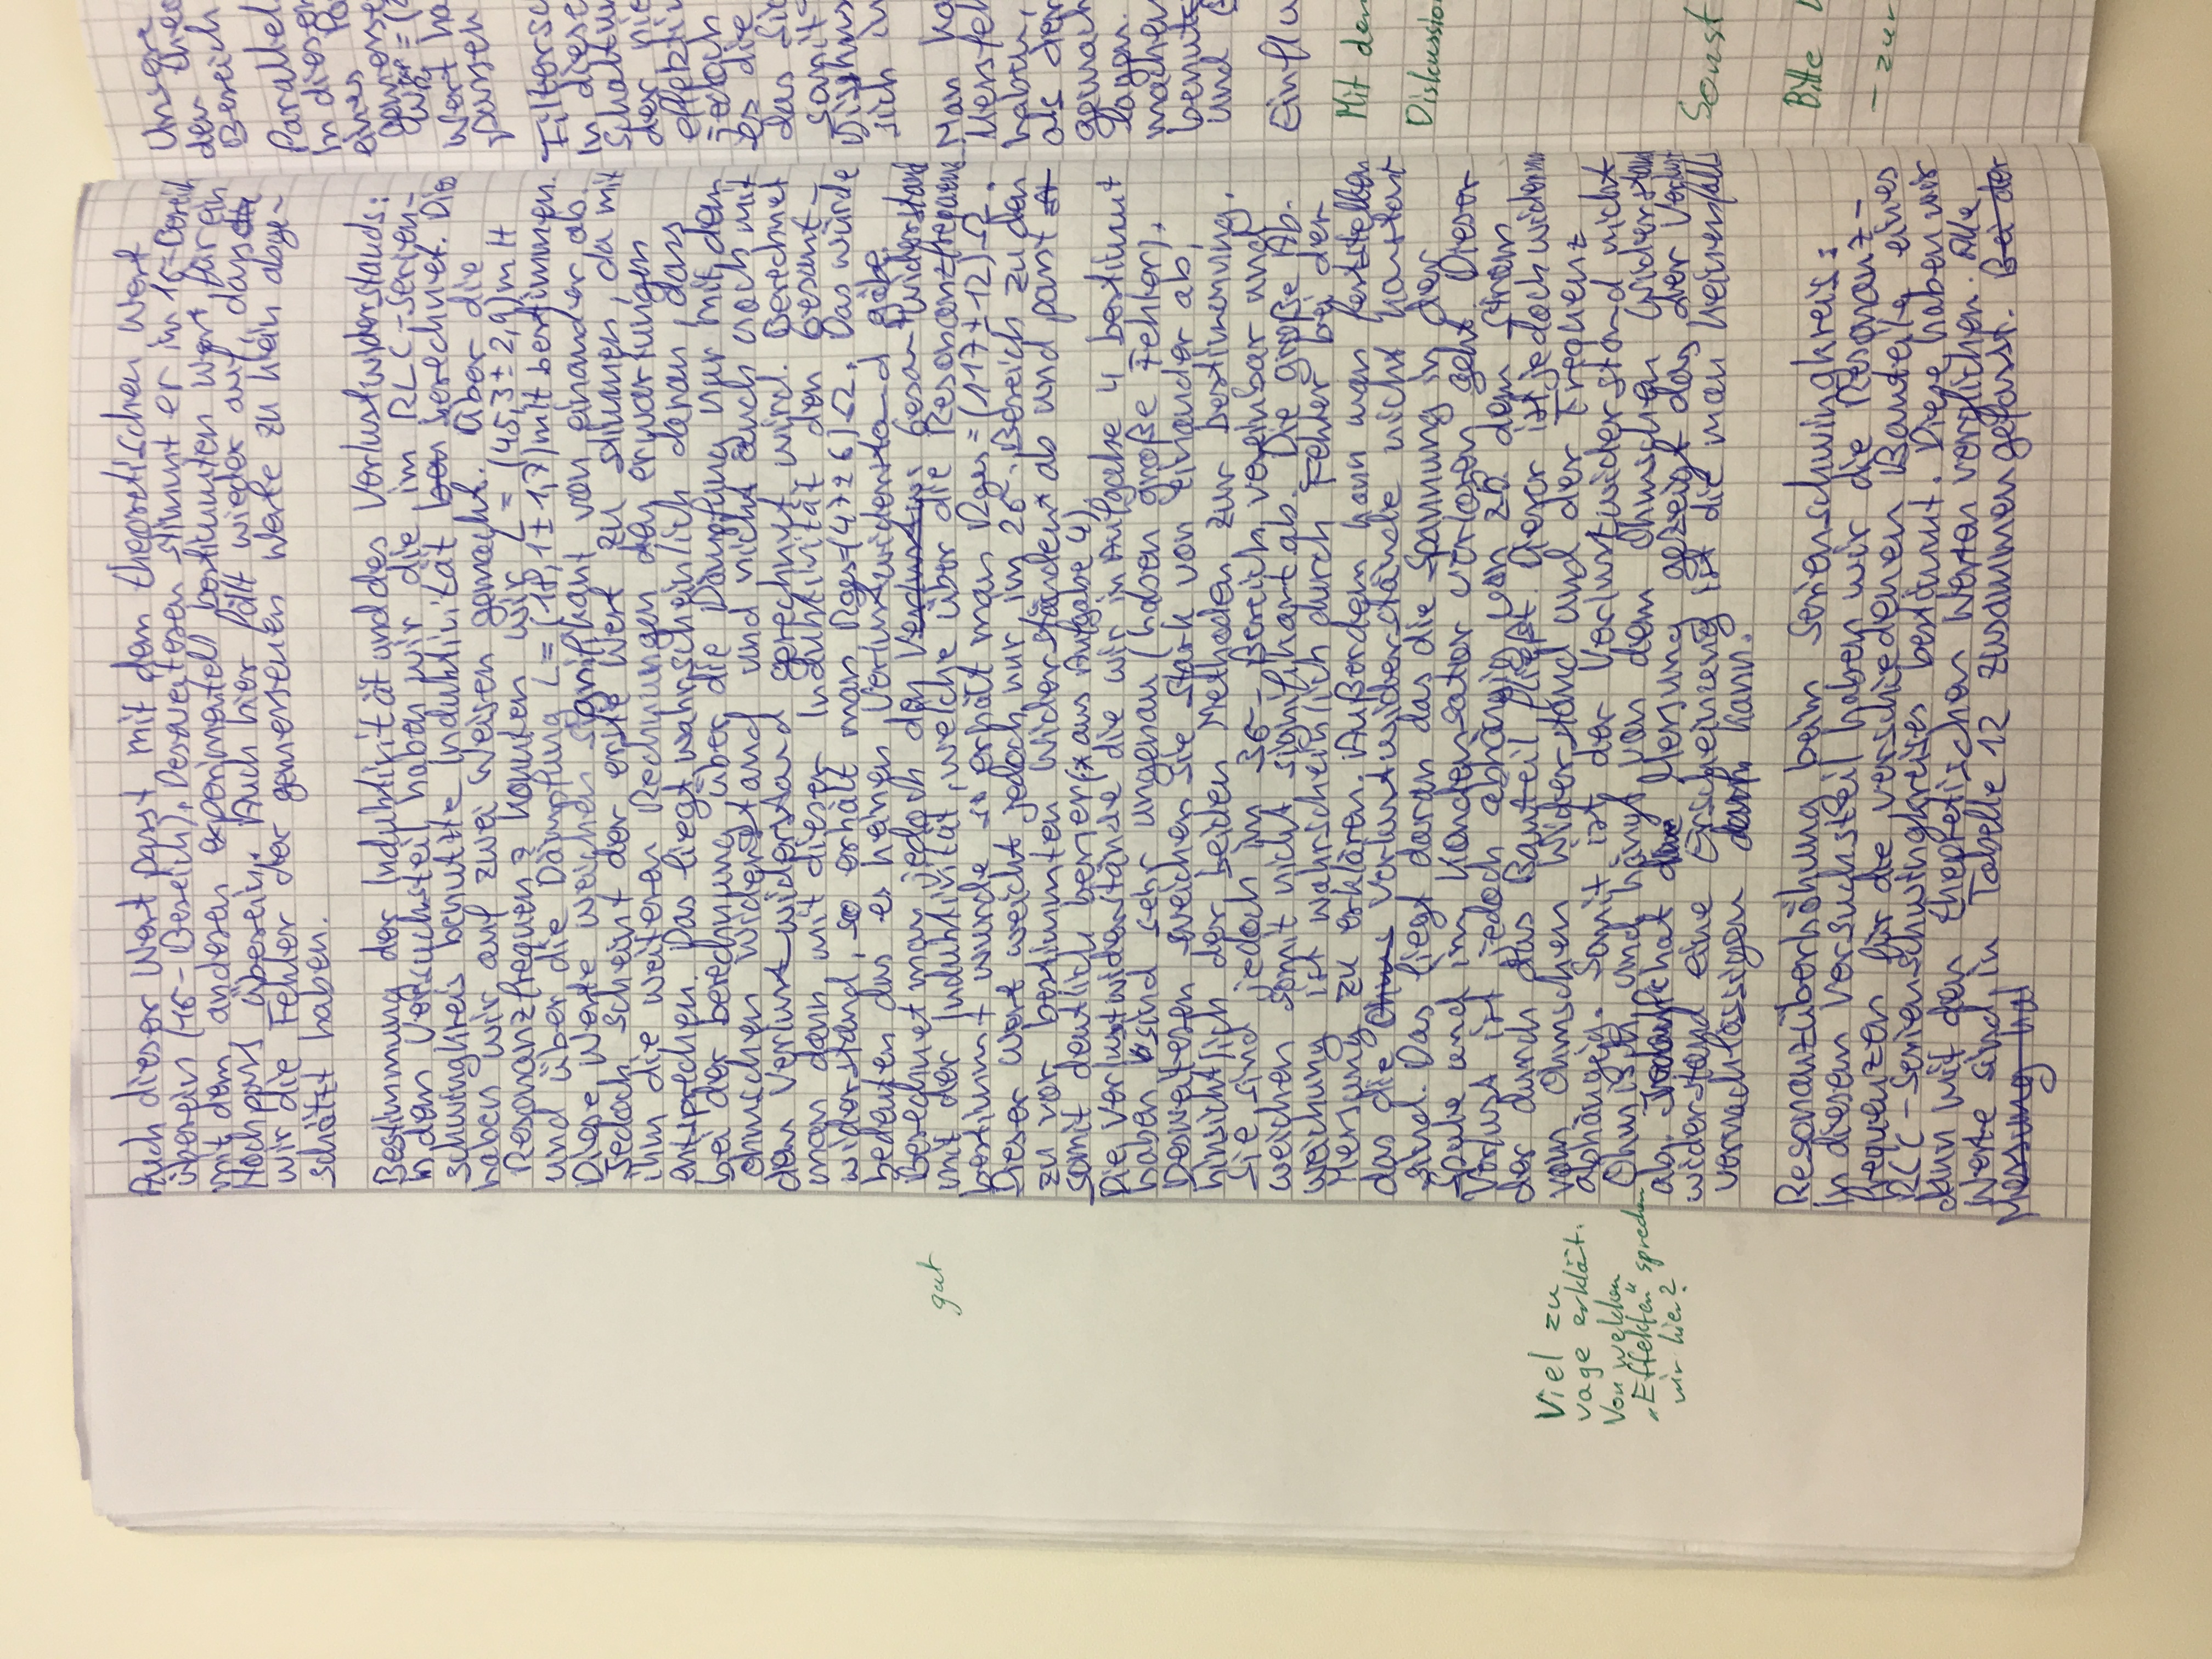 Auch dieser Wert passt mit dem theoretischen Wert
überein (1σ-Bereich). Desweiteren stimmt er im 1σ-Bereich
mit dem anderen experimentell bestimmten Wert für ein
Hochpass überein. Auch hier fällt wieder auf, dass die
wir die Fehler der gemessenen Werte zu klein abge-
schätzt haben.
Bestimmung der Induktivität und des Verlustwiderstands:
In dem Versuchsteil haben wir die im RLC-Serien-
schwingkreis benutzte Induktivität ben berechnet. Dies
haben wir auf zwei Weisen gemacht. Über die
Resonanzfrequenz konnten wir L = (45,3 ± 2,9) mH
und über die Dämpfung L = (18,1 ± 1,7) mH bestimmen.
Diese Werte weichen signifikant von einander ab.
Jedoch scheint der erste Wert zu stimmen, da mit
ihm die weiteren Rechnungen den erwartungen
entsprechen. Das liegt wahrscheinlich daran, dass
bei der berechnung über die Dämpfung nur mit dem
ohmschen Widerstand und nicht auch noch mit
dem Verlustwiderstand gerechnet wird. Berechnet
man dann mit dieser Induktivität den Gesamt-
widerstand, so erhält man Rges=(47±6)Ω. Das würde
bedeuten das es keinen Verlustwiderstand gäbe.
Berechnet man jedoch den Verlustwi Gesamtwiderstand
mit der Induktivität, welche über die Resonanzfrequenz
bestimmt wurde so erhält man Rges = (117±12)Ω.
Dieser Wert weicht jedoch nur im 2σ-Bereich zu den
zu vor bestimmten Widerständen* ab und passt
somit deutlich besser (* aus Aufgabe 4).
Die Verlustwiderstände die wir in Aufgabe 4 bestimmt
haben sind sehr ungenau (haben große Fehler).
Desweiteren weichen sie stark von einander ab,
hinsichtlich der beiden Methoden zur bestimmung.
Sie sind jedoch im 3σ-Bereich vereinbar und
weichen somit nicht signifikant ab. Die große Ab-
weichung ist wahrscheinlich durch Fehler bei der
Messung zu erklären. Außerdem kann man feststellen
das die Ohms Verlustwiderstände nicht konstant
sind. Das liegt daran das die Spannung in der
Spule und im Kondensator verloren geht. Dieser
Verlust ist jedoch abhängig von zB. dem Strom,
der durch das Bauteil fließt. Dieser ist jedoch widerum
vom Ohmschen Widerstand und der Frequenz
abhängig. Somit ist der Verlustwiderstand nicht
Ohmisch und hängt von dem Ohmschen Widerstand
ab. hat die Messung gezeigt das der Verlust
widerstand eine Erscheinung ist die man keinesfalls
vernachlässigen darf kann.
Resonanzüberhöhung beim Serienschwingkreis:
In diesem Versuchsteil haben wir die Resonanz-
frequenzen für die verschiedenen Bauteile eines
RLC-Serienschwingkreises bestimmt. Diese haben wir
dann mit den theoretischen Werten verglichen. Alle
Werte sind in Tabelle 12 zusammengefasst. Bei der
Messung hat
gut
Viel zu
vage erklärt.
Von welchen
„Effekten" sprechen
wir hier?
Unsere
den theo
Bereich
Parallel
In dieser
eines Pa
Wert ha
passen
Filtersc
In diese
Schaltun
der nie
effektiv
jedoch
es die
das Sig
somit
sich in
Man ka
haben,
als der
gemach
lagen.
machen
benutz
und
Einflu
Mit den
Diskussion
Sonst
Bitte
- zur